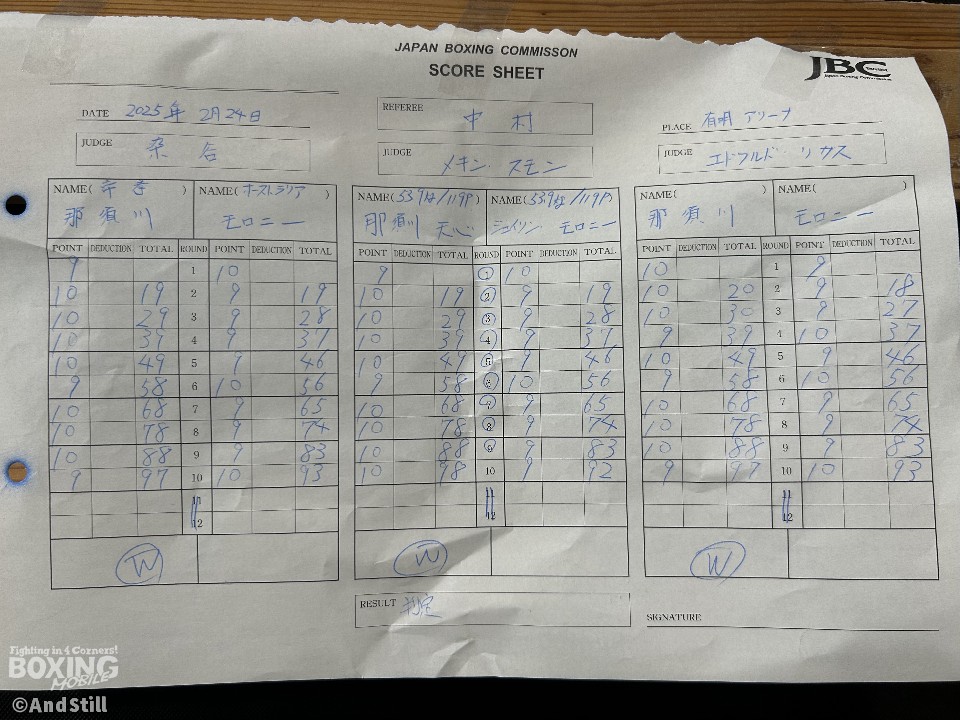 JAPAN BOXING COMMISSON
SCORE SHEET
JBC
DATE 2025年 2月24日
REFEREE 中村
PLACE 有明アリーナ
JUDGE
JUDGE
JUDGE エドフルド・リガス
NAME( ) NAME(オーストラリア) NAME(53.9kg/119P) NAME(53.9kg/119P) NAME( ) NAME( )
那須川 モロニー 那須川 天心 モロニー 那須川 モロニー
POINT DEDUCTION TOTAL ROUND POINT DEDUCTION TOTAL POINT DEDUCTION TOTAL ROUND POINT DEDUCTION TOTAL POINT DEDUCTION TOTAL ROUND POINT DEDUCTION TOTAL
9 1 10 9 1 10 10 1 9
10 19 2 9 19 10 19 2 9 19 10 20 2 9 18
10 29 3 9 28 10 29 3 9 28 10 30 3 9 27
10 39 4 9 37 10 39 4 9 37 9 39 4 10 37
10 49 5 9 46 10 49 5 9 46 10 49 5 9 46
9 58 6 10 56 9 58 6 10 56 9 58 6 10 56
10 68 7 9 65 10 68 7 9 65 10 68 7 9 65
10 78 8 9 74 10 78 8 9 74 10 78 8 9 74
10 88 9 9 83 10 88 9 9 83 10 88 9 9 83
9 97 10 10 93 10 98 10 9 92 9 97 10 10 93
11 11 11
12 12 12
W W W
RESULT 判定
SIGNATURE
Fighting in 4 Corners!
BOXING
MOBILE
©AndStill